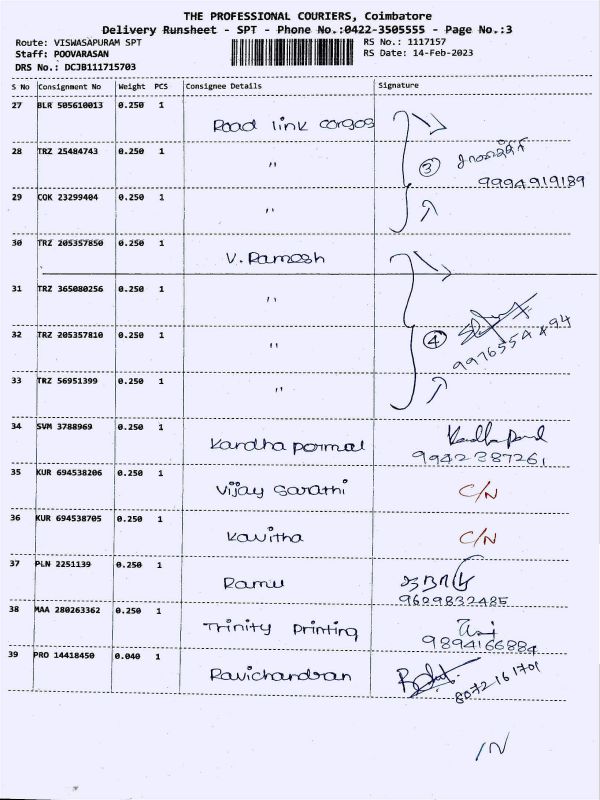 THE PROFESSIONAL COURIERS, Coimbatore
Delivery Runsheet - SPT - Phone No.:0422-3505555 - Page No.:3
Route: VISWASAPURAM SPT RS No.: 1117157
Staff: POOVARASAN RS Date: 14-Feb-2023
DRS No.: DCJB111715703
S No Consignment No Weight PCS Consignee Details Signature
27 BLR 505610013 0.250 1 Road link corgos
28 TRZ 25484743 0.250 1 " 3
9994919189
29 COK 23299404 0.250 1 "
30 TRZ 205357850 0.250 1 V. Ramesh
31 TRZ 365080256 0.250 1 "
32 TRZ 205357810 0.250 1 " 4
9976554494
33 TRZ 56951399 0.250 1 "
34 SVM 3788969 0.250 1 Kandha pormal
9942387261
35 KUR 694538206 0.250 1 Vijay Sarathi C/N
36 KUR 694538705 0.250 1 Kavitha C/N
37 PLN 2251139 0.250 1 Ramu
9609832485
38 MAA 280263362 0.250 1 Trinity Printing
9894166884
39 PRO 14418450 0.040 1 Ravichandran
8072161701
IN